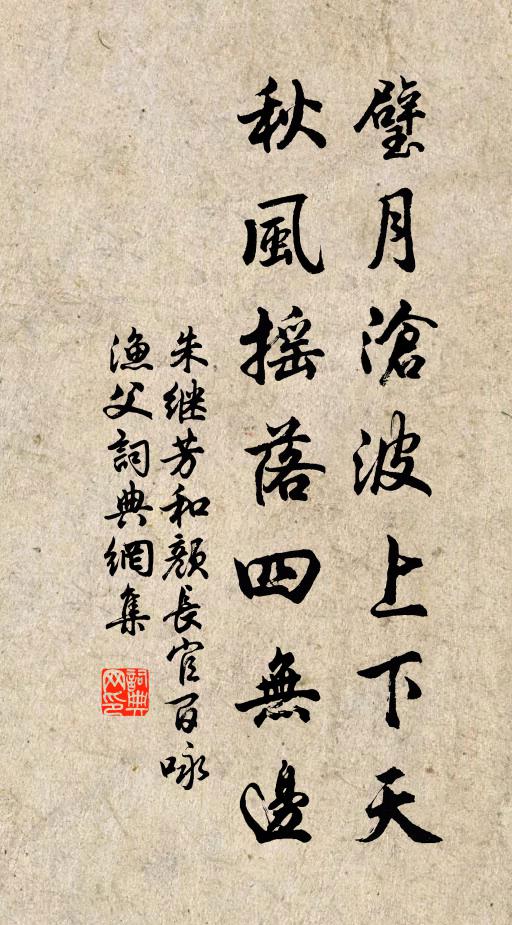 璧月滄波上下天
秋風摇落四無邊
朱继芳和顏長官百咏
漁父詞典網集
詞典网印